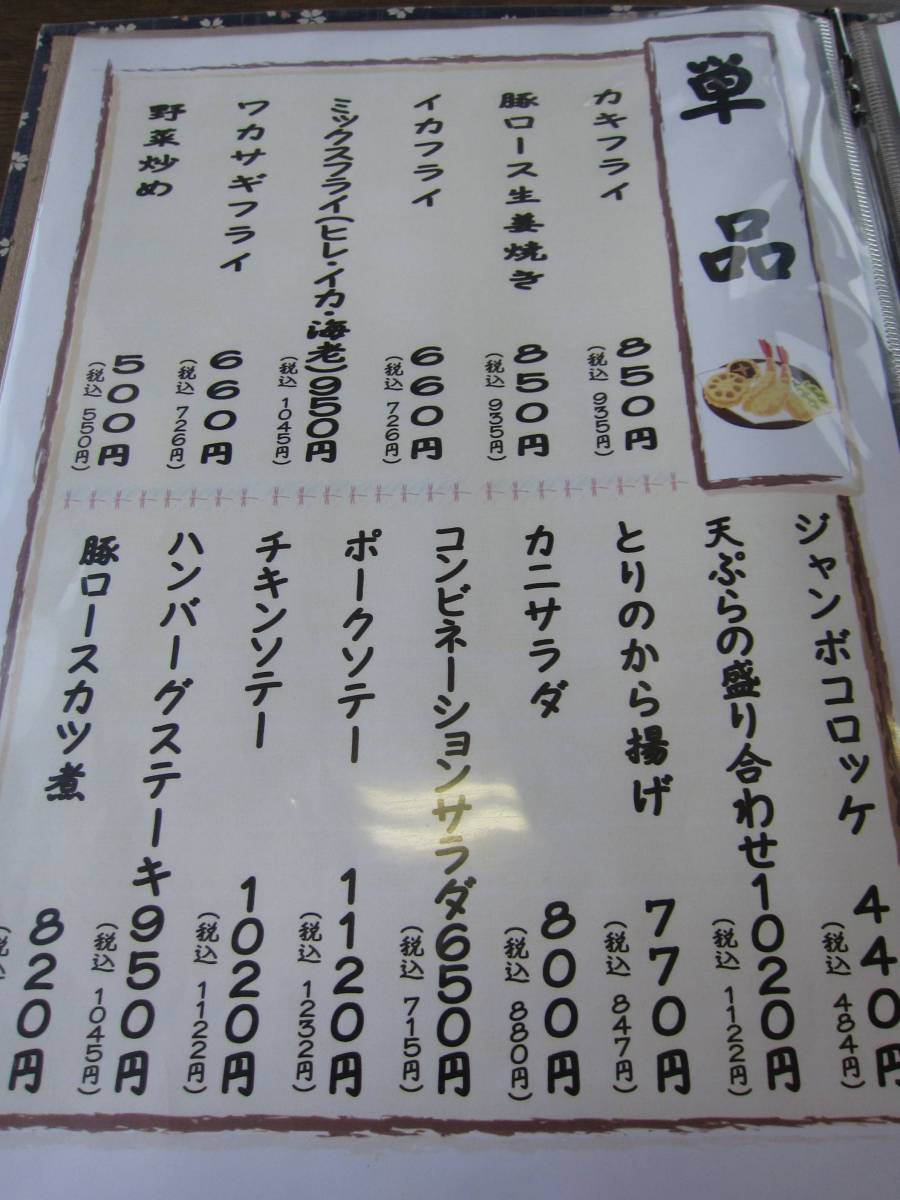 単品
カキフライ 850円
(税込 935円)
豚ロース生姜焼き 850円
(税込 935円)
イカフライ 660円
(税込 726円)
ミックスフライ(ヒレ・イカ・海老)950円
(税込 1045円)
ワカサギフライ 660円
(税込 726円)
野菜炒め 500円
(税込 550円)
ジャンボコロッケ 440円
(税込 484円)
天ぷらの盛り合わせ1020円
(税込 1122円)
とりのから揚げ 770円
(税込 847円)
カニサラダ 800円
(税込 880円)
コンビネーションサラダ650円
(税込 715円)
ポークソテー 1120円
(税込 1232円)
チキンソテー 1020円
(税込 1122円)
ハンバーグステーキ950円
(税込 1045円)
豚ロースカツ煮 820円
(税込